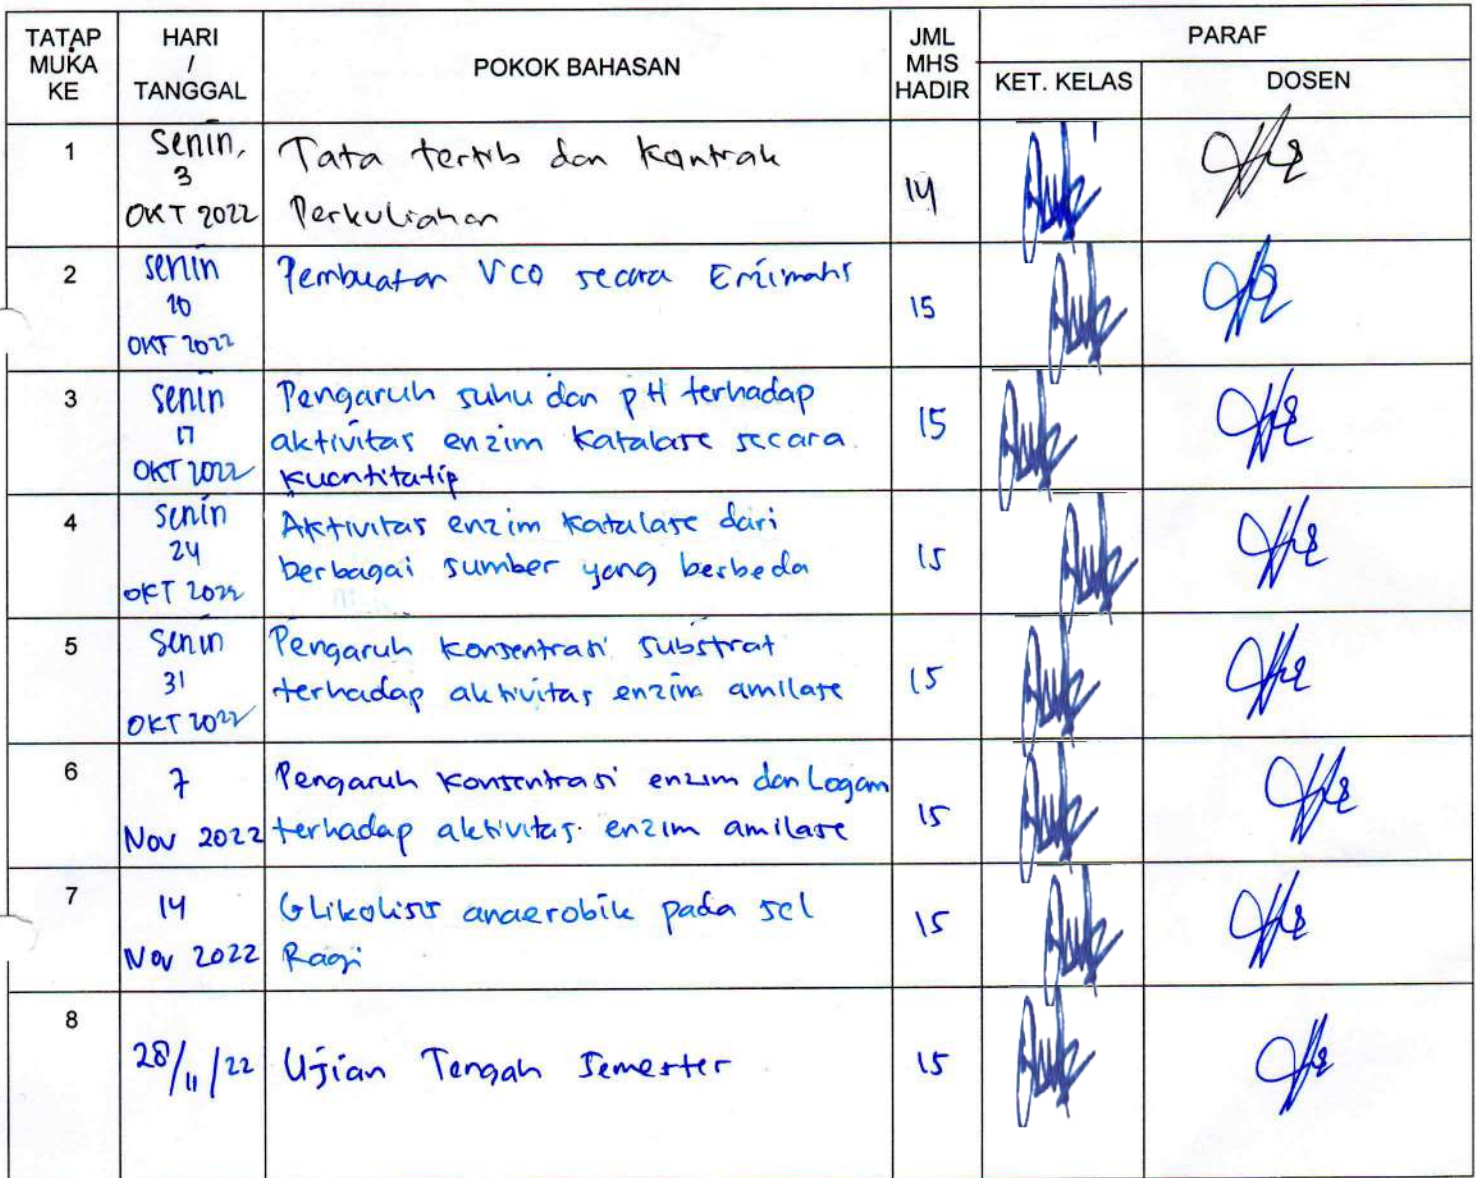 TATAP MUKA KE
HARI / TANGGAL
POKOK BAHASAN
JML MHS HADIR
PARAF
KET. KELAS
DOSEN
1
Senin,
3
OKT 2022
Tata tertib dan Kontrak
Perkuliahan
14
2
Senin
10
OKT 2022
Pembuatan VCO secara Enzimatis
15
3
Senin
17
OKT 2022
Pengaruh suhu dan pH terhadap
aktivitas enzim Katalase secara
kuantitatip
15
4
Senin
24
OKT 2022
Aktivitas enzim Katalase dari
berbagai sumber yang berbeda
15
5
Senin
31
OKT 2022
Pengaruh konsentrasi substrat
terhadap aktivitas enzim amilase
15
6
7
Nov 2022
Pengaruh Konsentrasi enzim dan Logam
terhadap aktivitas enzim amilase
15
7
14
Nov 2022
Glikolisis anaerobik pada sel
Ragi
15
8
28/11/22
Ujian Tengah Semester
15